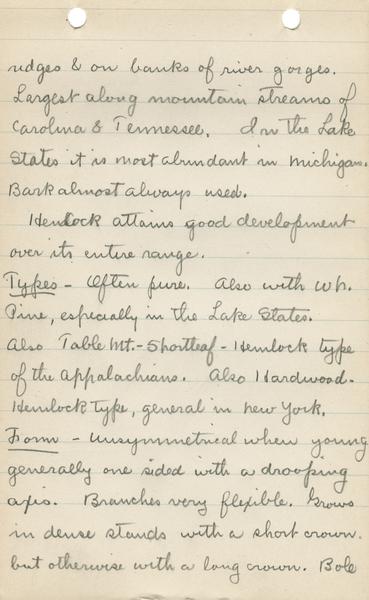 ridges & on banks of river gorges.
Largest along mountain streams of
Carolina & Tennessee. In the Lake
States it is most abundant in Michigan.
Bark almost always used.
Hemlock attains good development
over its entire range.
Types - Often pure. Also with Wh.
Pine, especially in the Lake States.
Also Table Mt. - Shortleaf - Hemlock type
of the Appalachians. Also Hardwood -
Hemlock type, general in New York.
Form - Unsymmetrical when young
generally one sided with a drooping
axis. Branches very flexible. Grows
in dense stands with a short crown.
but otherwise with a long crown. Bole